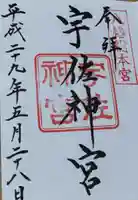 奉拝
本宮
宇佐神宮
宇佐
神宮
平成二十九年五月二十八日